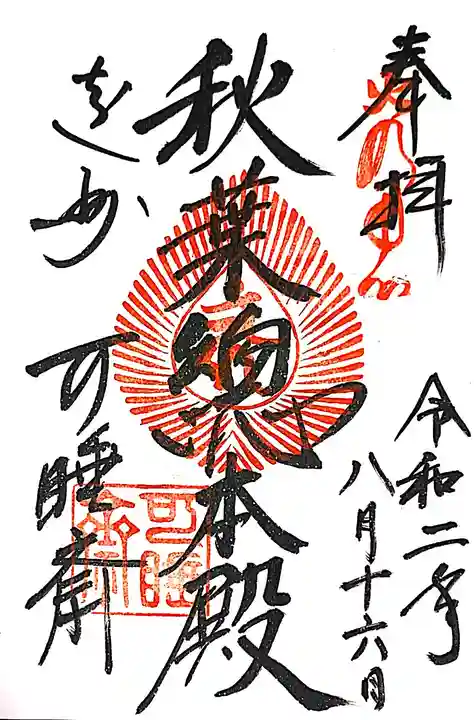 奉拝
令和二年
八月十六日
秋葉總本殿
遠州 可睡齋